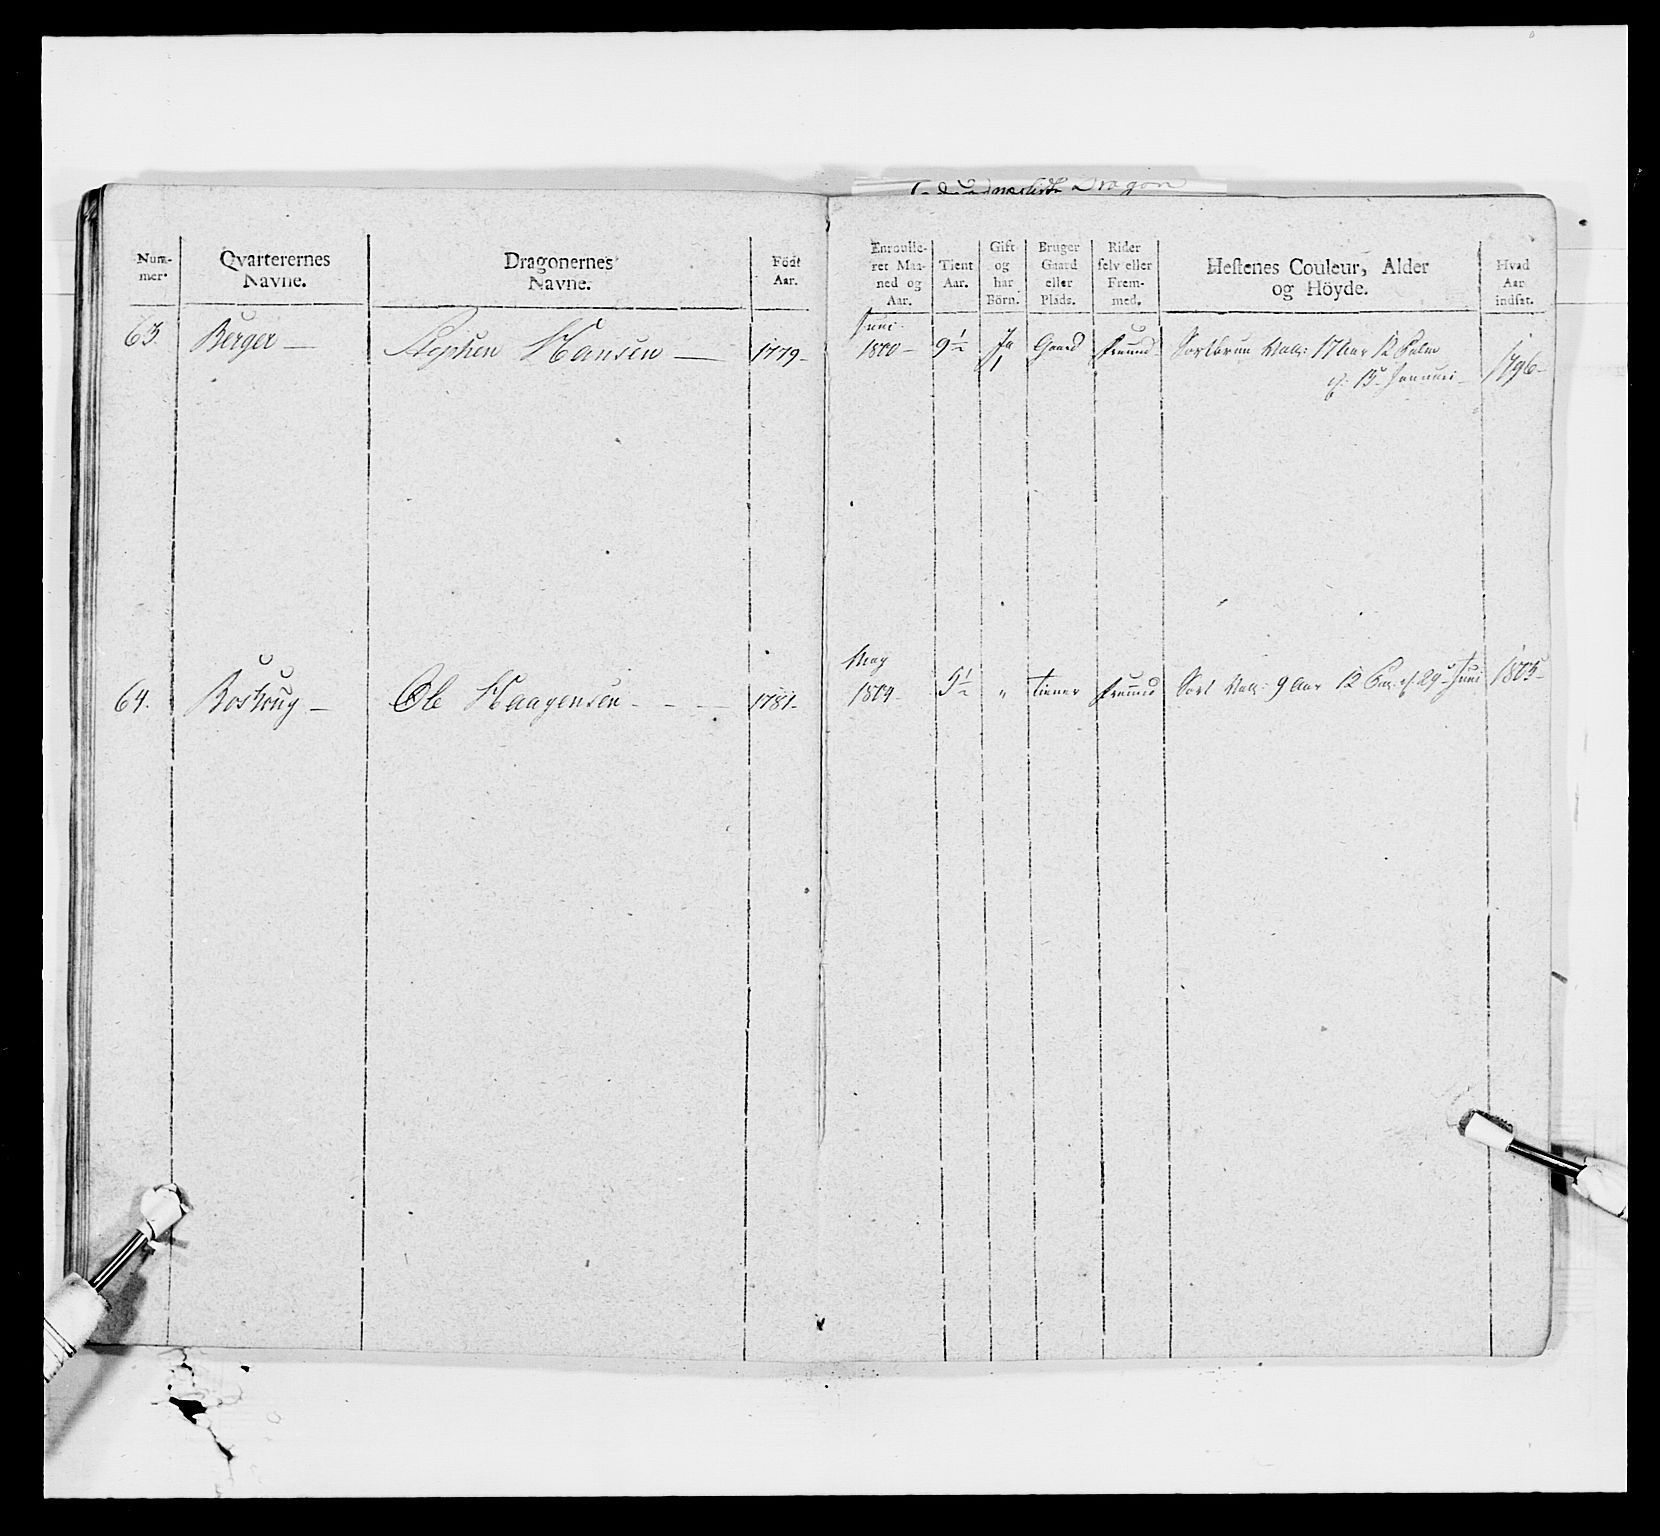 Dragon
Num-
mer.
Qvarterernes
Navne.
Dragonernes
Navne.
Födt
Aar.
Enroulle-
ret Maa-
ned og
Aar.
Tient
Aar.
Gift
og
har
Börn.
Bruger
Gaard
eller
Plads.
Rider
selv eller
Frem-
med.
Hestenes Couleur, Alder
og Höyde.
Hvad
Aar
indsat.
63. Berger — Stephen Hansen — 1779- Juni
1800- 9½ Ja
1 Gaard fremd- Sortbrun Vall: 17 Aar 12 Palm
13 1796-
64. Bostrug — Ole Haagensen - - - 1781- May
1804- 5½ " tiener fremd Sort Vall: 9 Aar 12 29 Juni 1805-